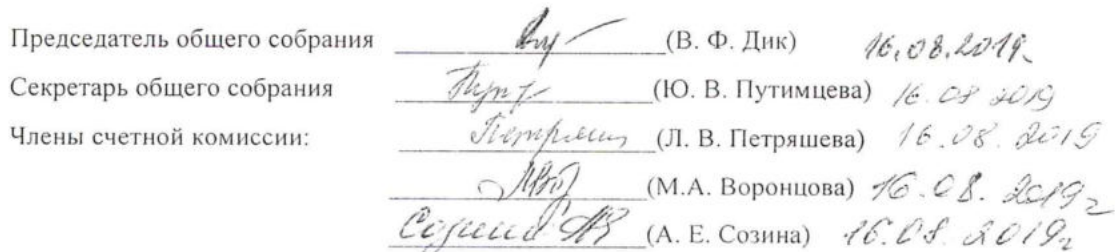 Председатель общего собрания (В. Ф. Дик) 16.08.2019г
Секретарь общего собрания (Ю. В. Путимцева) 16.08 2019
Члены счетной комиссии: (Л. В. Петряшева) 16.08. 2019
(М.А. Воронцова) 16.08. 2019г
Созина (А. Е. Созина) 16.08.2019г